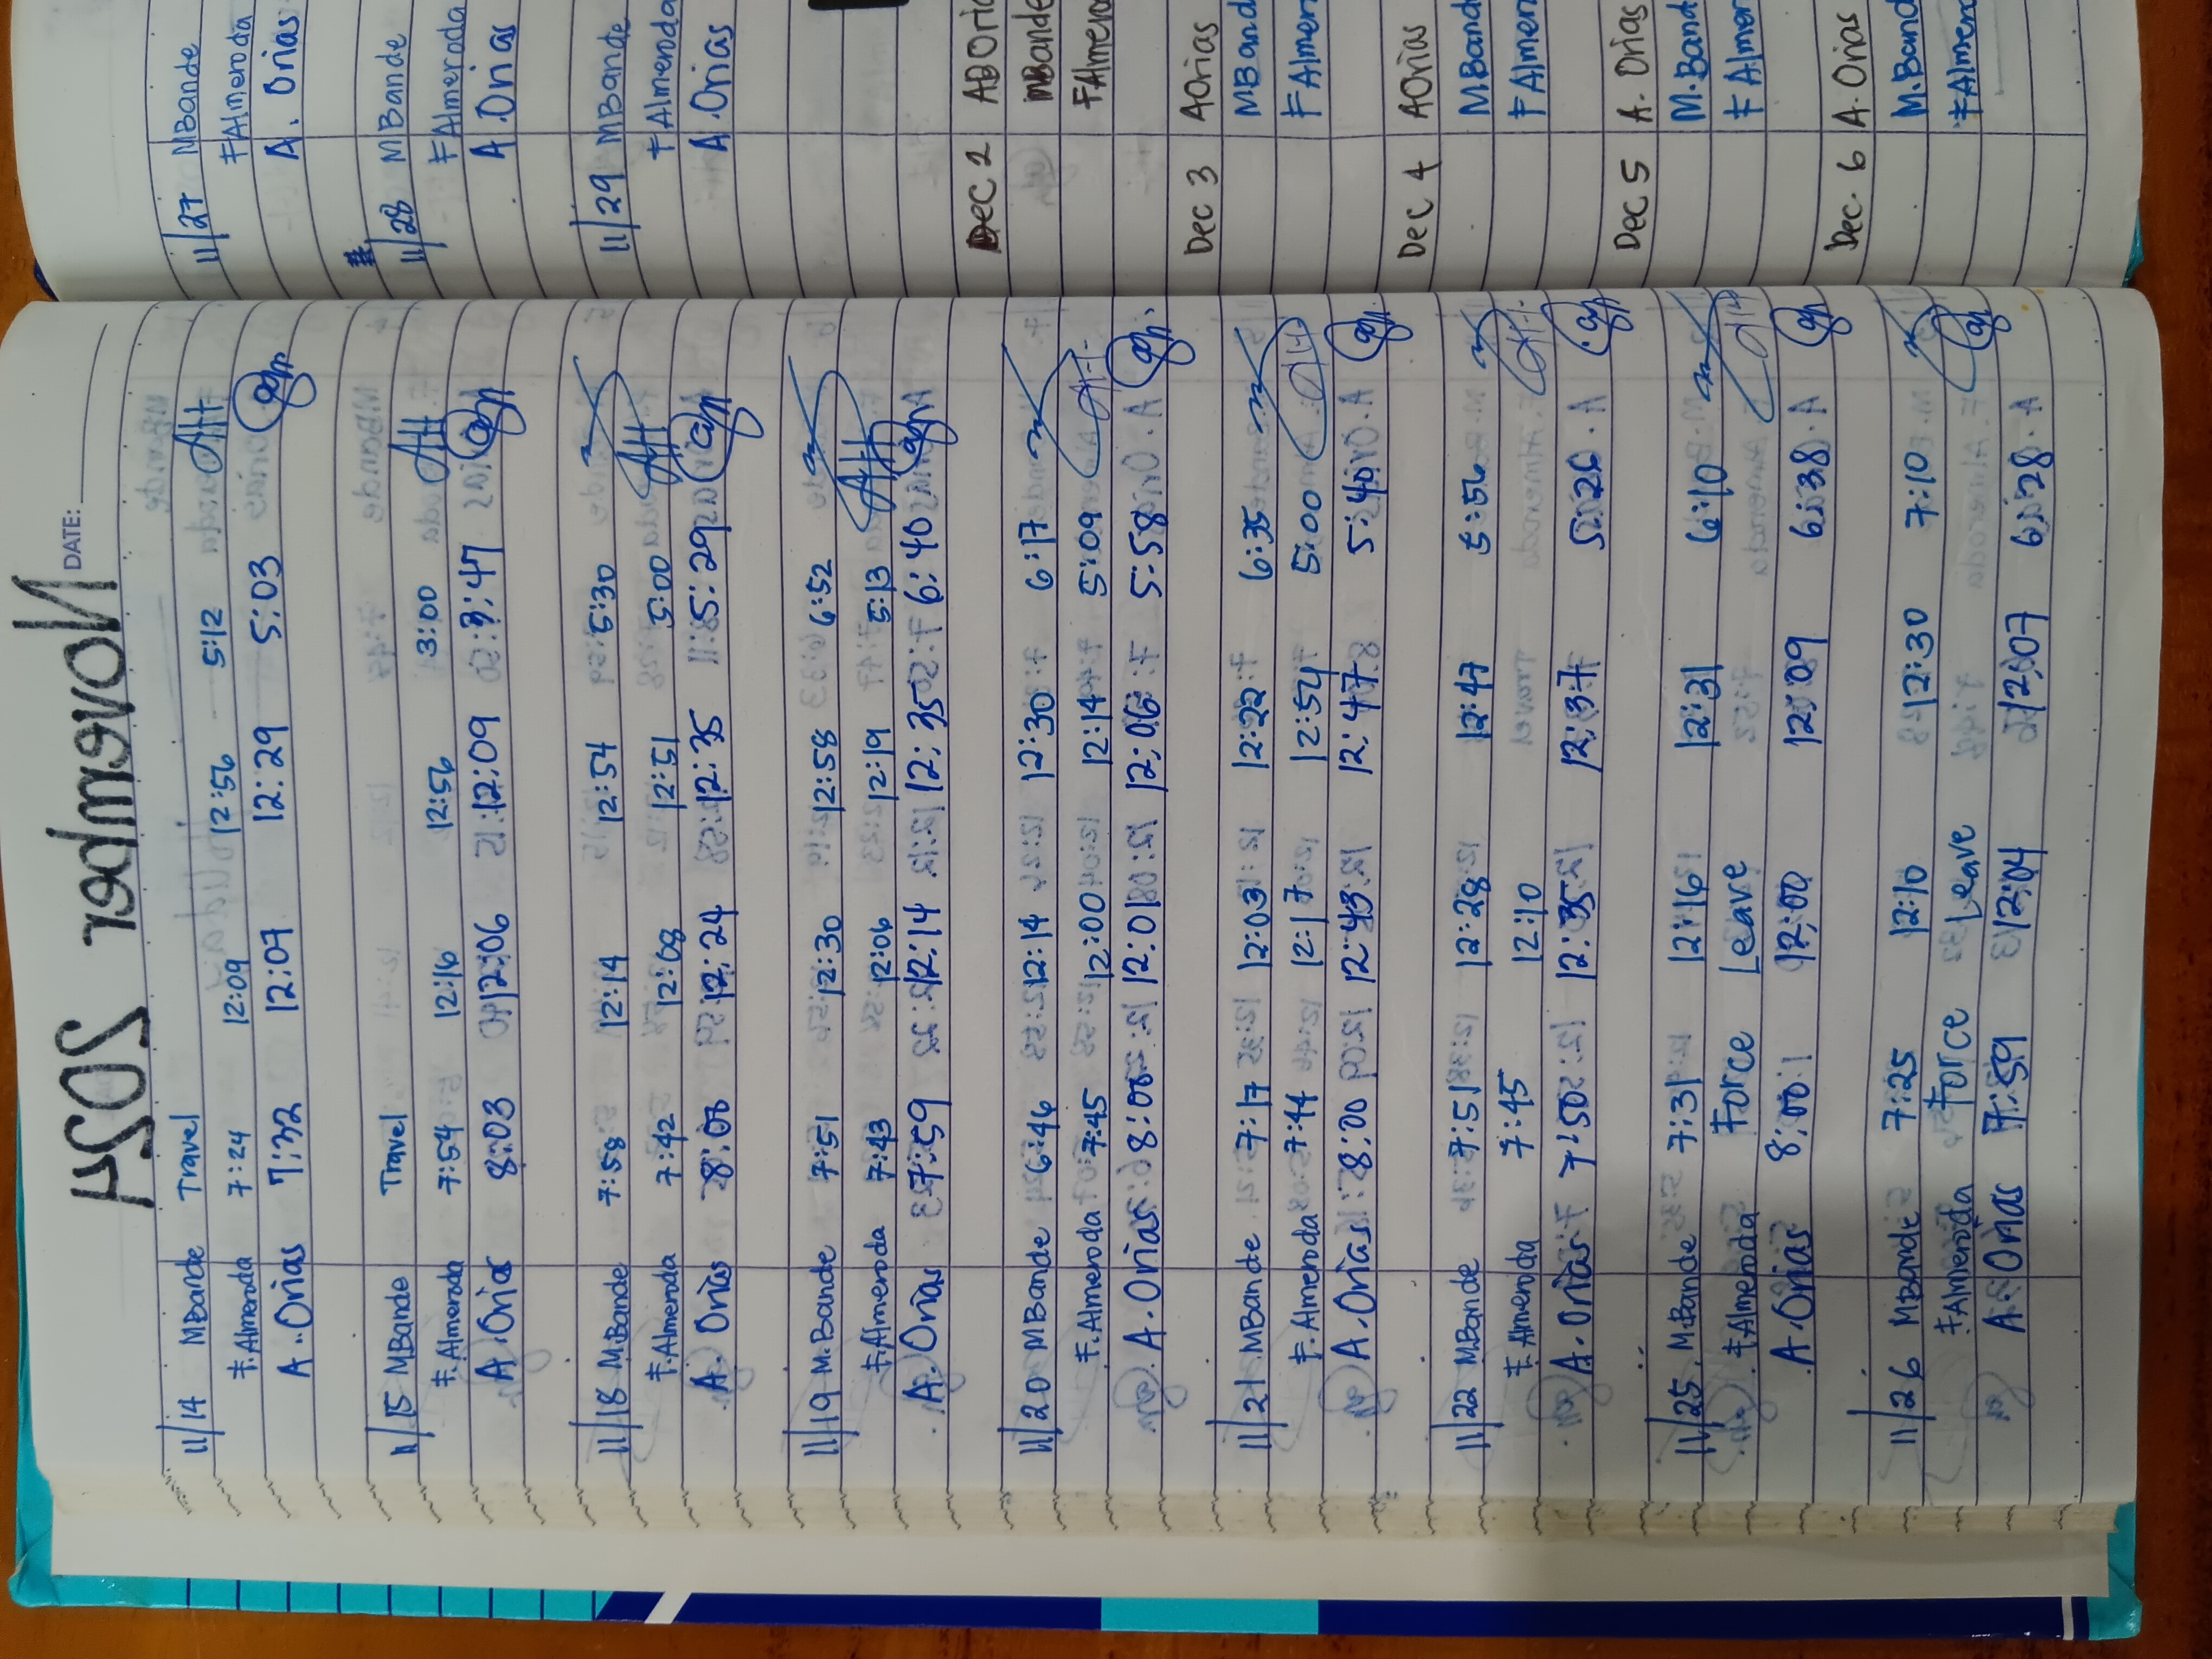 DATE:
November 2024
11/14 MBande Travel
F.Almeroda 7:24 12:09 12:56 5:12
A. Orias 7:32 12:07 12:29 5:03
11/15 MBande Travel
F.Almeroda 7:54 12:16 12:56 3:00
A. Orias 8:03 12:06 12:09 3:47
11/18 M.Bande 7:58 12:14 12:54 5:30
F.Almeroda 7:42 12:08 12:51 5:00
A. Orias 8:06 12:24 12:35 5:29
11/19 M.Bande 7:51 12:30 12:58 6:52
F.Almeroda 7:43 12:06 12:19 5:13
A. Orias 7:59 12:14 12:35 6:40
11/20 MBande 6:46 12:14 12:30 6:17
F.Almeroda 7:45 12:00 12:14 5:09
A. Orias 8:00 12:01 12:06 5:58
11/21 MBande 7:17 12:03 12:22 6:35
F.Almeroda 7:44 12:17 12:54 5:00
A. Orias 8:00 12:43 12:47 5:40
11/22 M.Bande 7:51 12:28 12:47 5:56
F.Almeroda 7:45 12:10
A. Orias 7:50 12:35 12:37 5:26
11/25 M.Bande 7:31 12:16 12:31 6:10
F.Almeroda Force Leave
A. Orias 8:00 12:00 12:09 6:38
11/26 MBande 7:25 12:10 12:30 7:10
F.Almeroda Force Leave
A. Orias 7:59 12:04 12:07 6:28
11/27 MBande
FAlmeroda
A. Orias
11/28 MBande
FAlmerada
A Orias
11/29 MBande
FAlmeroda
A. Orias
Dec 2 ABOria
MBande
FAlmero
Dec 3 AOrias
MBand
FAlmer
Dec 4 AOrias
M.Band
FAlmer
Dec 5 A. Orias
M.Band
FAlmer
Dec. 6 A. Orias
M.Band
FAlmero